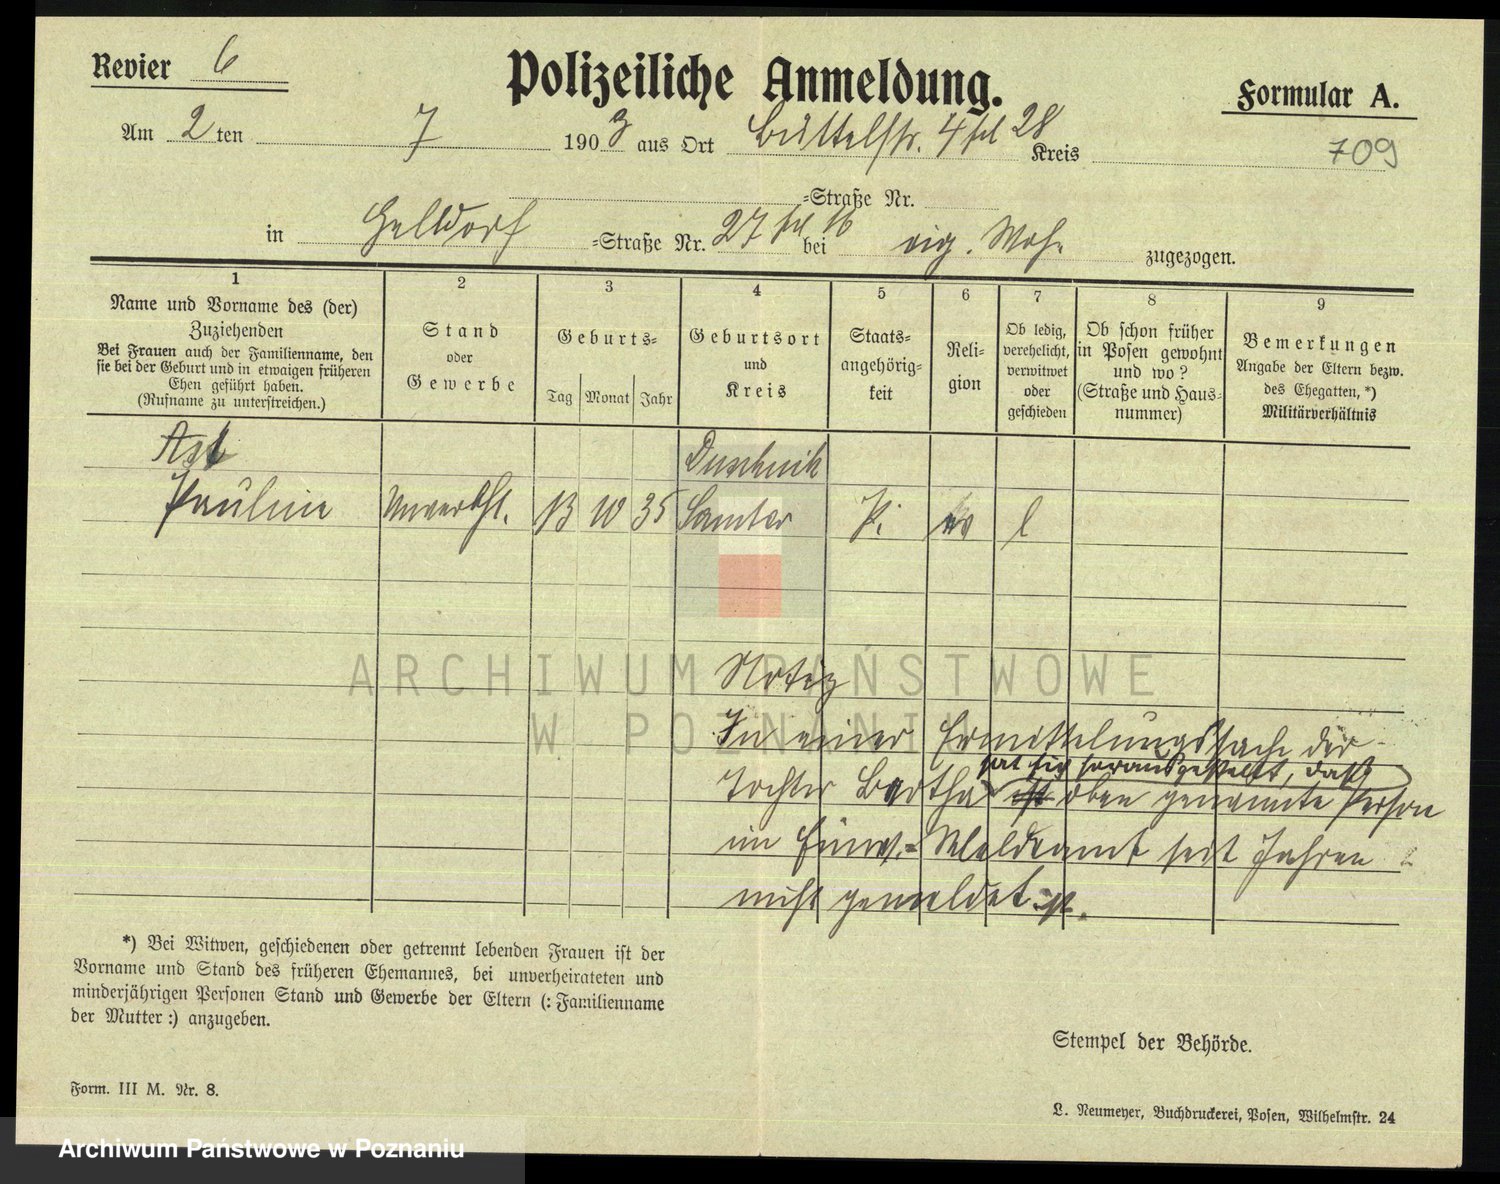 Revier 6
Polizeiliche Anmeldung.
Formular A.
Am 2 ten 7 1903 aus Ort Büttelstr. 4 28 Kreis
709
=Straße Nr.
in Helldorf =Straße Nr. 27 bei eig. Wohn zugezogen.
1 2 3 4 5 6 7 8 9
Name und Vorname des (der)
Zuziehenden
Bei Frauen auch der Familienname, den
sie bei der Geburt und in etwaigen früheren
Ehen geführt haben.
(Rufname zu unterstreichen.)
Stand
oder
Gewerbe
Geburts=
Tag Monat Jahr
Geburtsort
und
Kreis
Staats=
angehörig=
keit
Reli=
gion
Ob ledig,
verehelicht,
verwitwet
oder
geschieden
Ob schon früher
in Posen gewohnt
und wo?
(Straße und Haus=
nummer)
Bemerkungen
Angabe der Eltern bezw.
des Ehegatten, *)
Militärverhältnis
Ast Duschnik
Pauline Unverehl. 13 10 35 Samter P. ev l
Notiz
In einer Ermittelungssache der
hat sich herausgestellt, daß
Tochter Bertha ist oben genannte Person
im Einw.=Meldeamt seit Jahren
nicht gemeldet ist.
*) Bei Witwen, geschiedenen oder getrennt lebenden Frauen ist der
Vorname und Stand des früheren Ehemannes, bei unverheirateten und
minderjährigen Personen Stand und Gewerbe der Eltern (: Familienname
der Mutter :) anzugeben.
Stempel der Behörde.
Form. III M. Nr. 8.
L. Neumeyer, Buchdruckerei, Posen, Wilhelmstr. 24
ARCHIWUM PAŃSTWOWE
W POZNANIU
Archiwum Państwowe w Poznaniu